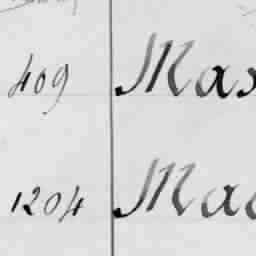 409 Mas
1204 Mac